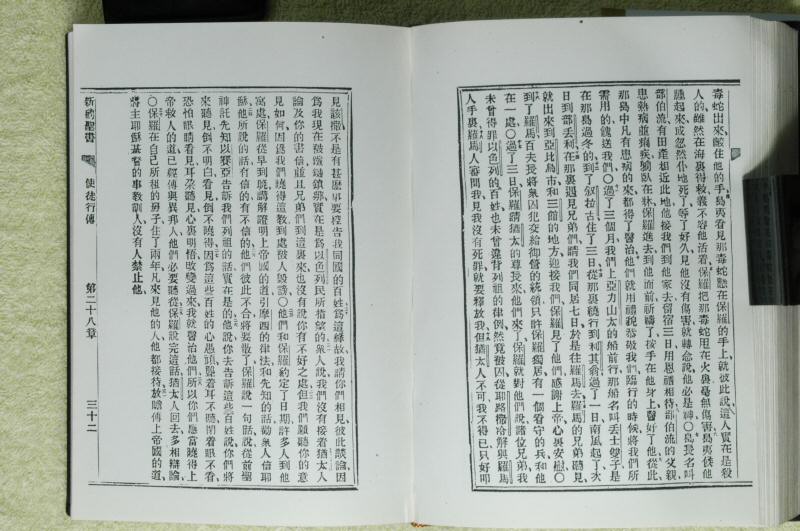 毒蛇出來齩住他的手島夷看見那毒蛇懸在保羅的手上就彼此說這人實在是殺
人的雖然在海裏得救義不容他活着保羅把那毒蛇甩在火裏毫無傷害島夷候他
腫起來或忽然仆地死了等了好久見他沒有傷害就轉念說他必是神〇島長名叫
部伯流有田產相近此地他接我們到他家去留宿三日用恩禮相待部伯流的父親
患熱病並痢疾臥在牀保羅進去到他面前祈禱了按手在他身上醫好了他從此
那島中凡有患病的來都得了醫治他們就用禮貌恭敬我們臨行的時候將我們所
需用的餽送我們〇過了三個月我們上亞力山太的船前行那船名叫丟士雙子是
在那島過冬的到了叙拉古住了三日從那裏繞行到利其翁過了一日南風起了次
日到部丟利在那裏遇見兄弟們請我們同居七日於是往羅馬去羅馬的兄弟聽見
就出來到亞比烏市和三館的地方迎接我們保羅見了他們感謝上帝心裏安慰〇
到了羅馬百夫長將衆囚犯交給御營的統領只許保羅獨居有一個看守的兵和他
在一處〇過了三日保羅請猶太的尊長來他們來了保羅就對他們說諸位兄弟我
未曾得罪以色列的百姓也未曾違背列祖的律例然竟被囚從耶路撒冷解與羅馬
人手裏羅馬人審問我見我沒有死罪就要釋放我但猶太人不可我不得已只好叩
見該撒不是有甚麼事要控告我同國的百姓爲這緣故我請你們相見彼此談論因
爲我現在被這鐵鏈鎖鄉實在是爲以色列民所指望的衆人說我們沒有接着猶太人
論及你的書信並且兄弟們到這裏來也沒有說你有不好之處但我們願聽你的意
見如何因爲我們曉得這教到處被人毀謗〇他們和保羅約定了日期許多人到他
寓處保羅從早到晚講解證明上帝國的道引摩西的律法和先知的話勸衆人信耶
穌他所說的話有信的有不信的他們彼此不合將要散了保羅說一句話說從前聖
神託先知以賽亞告訴我們列祖的話實在是的他說你去告訴這些百姓說你們將
來聽見倒不明白看見倒不曉得因爲這些百姓的心愚頑掩着耳不聽閉着眼不看
恐怕眼睛看見耳朶聽見心裏明悟改變過來我就醫治他們所以你們應當曉得上
帝救人的道已經傳與異邦人他們必要聽從保羅說完這話猶太人回去多相辯論
〇保羅在自己所租的房子住了兩年凡來見他的人他都接待放膽傳上帝國的道
將主耶穌基督的事教訓人沒有人禁止他
新約聖書 使徒行傳 第二十八章 三十二